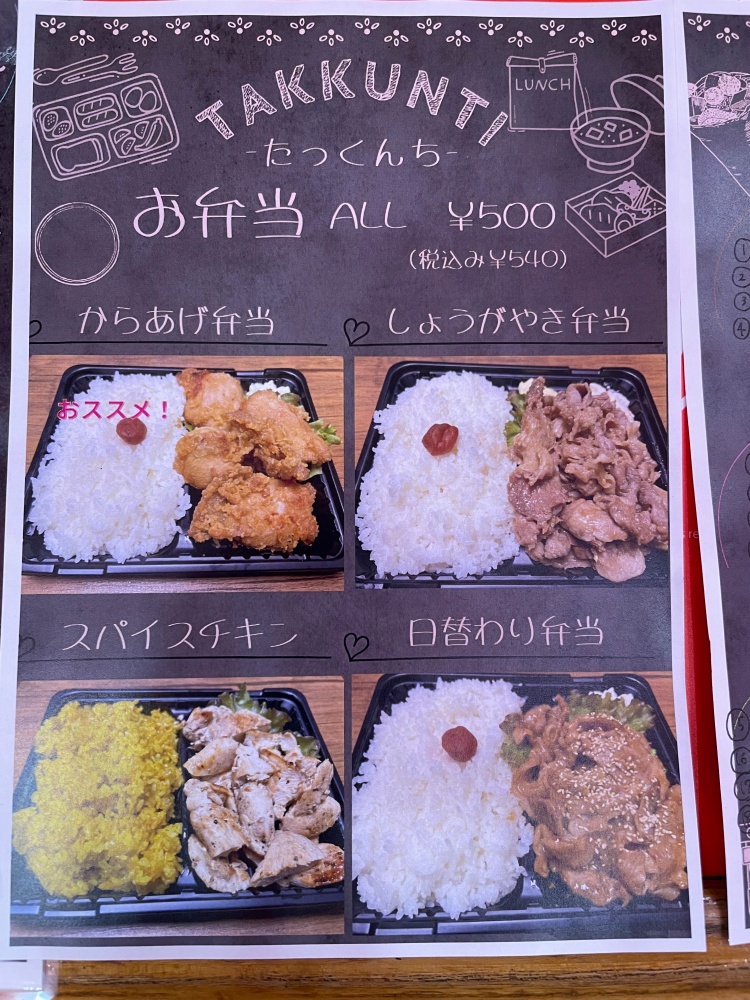 TAKKUNTI
LUNCH
-たっくんち-
お弁当 ALL ¥500
(税込み¥540)
からあげ弁当
しょうがやき弁当
おススメ！
スパイスチキン
日替わり弁当
①
②
③
④